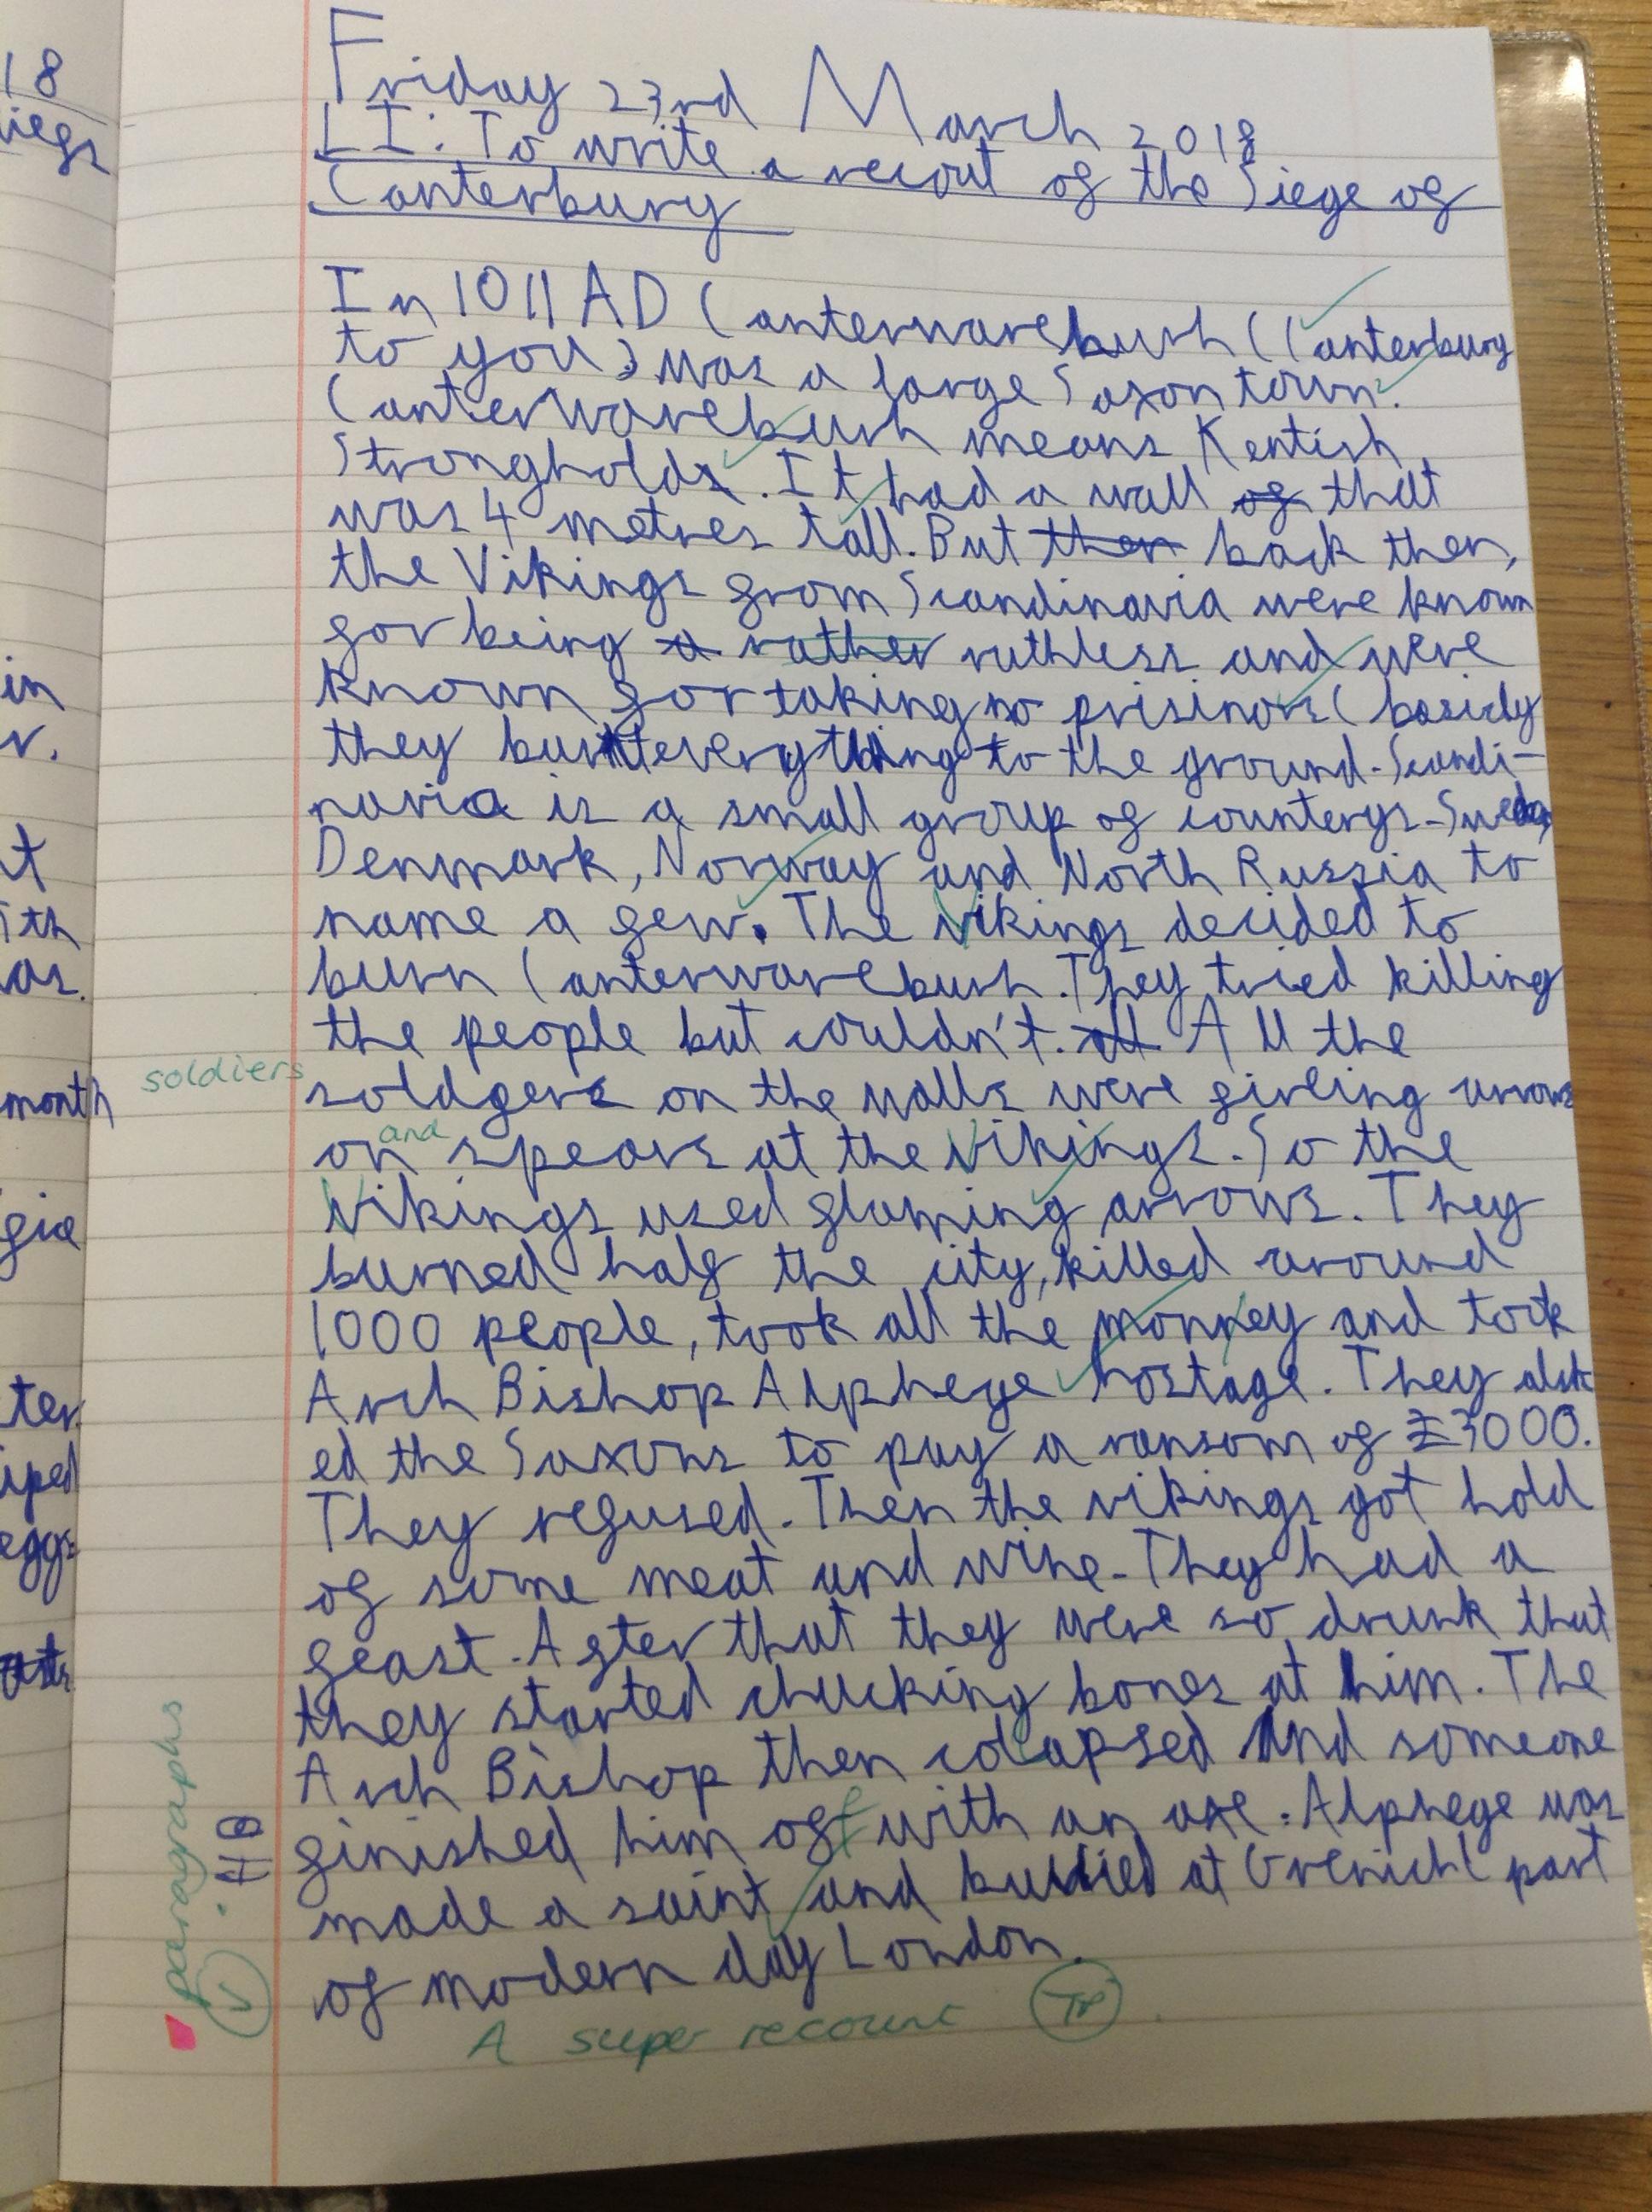 18
iege
in
r.
nt
ith
as.
month
gia
ter
iped
eggs
Friday 23rd March 2018
LI: To write a recout of the Siege of
Canterbury
In 1011 AD Canterwareburh (Canterbury
to you) was a large Saxon town.
Canterwareburh means Kentish
Stronghold. It had a wall of that
was 4 metres tall. But then back then,
the Vikings from Scandinavia were known
for being a rather ruthless and were
known for taking no prisinors (basicly
they burnt everything to the ground. Scandi-
navia is a small group of counterys-Sweden,
Denmark, Norway and North Russia to
name a few. The Vikings decided to
burn Canterwareburh. They tried killing
the people but couldn't. all All the
soldiers
soldgers on the walls were firling arrows
and
on spears at the Vikings. So the
Vikings used flaming arrows. They
burned half the city, killed around
1000 people, took all the monney and took
Arch Bishop Alphege hostage. They ask
ed the Saxons to pay a ransom of £3000.
They refused. Then the vikings got hold
of some meat and wine. They had a
feast. After that they were so drunk that
they started chucking bones at him. The
Arch Bishop then colapsed and someone
finished him off with an axe. Alphege was
made a saint and burried at Grenich part
of modern day London.
paragraphs
A super recount TP